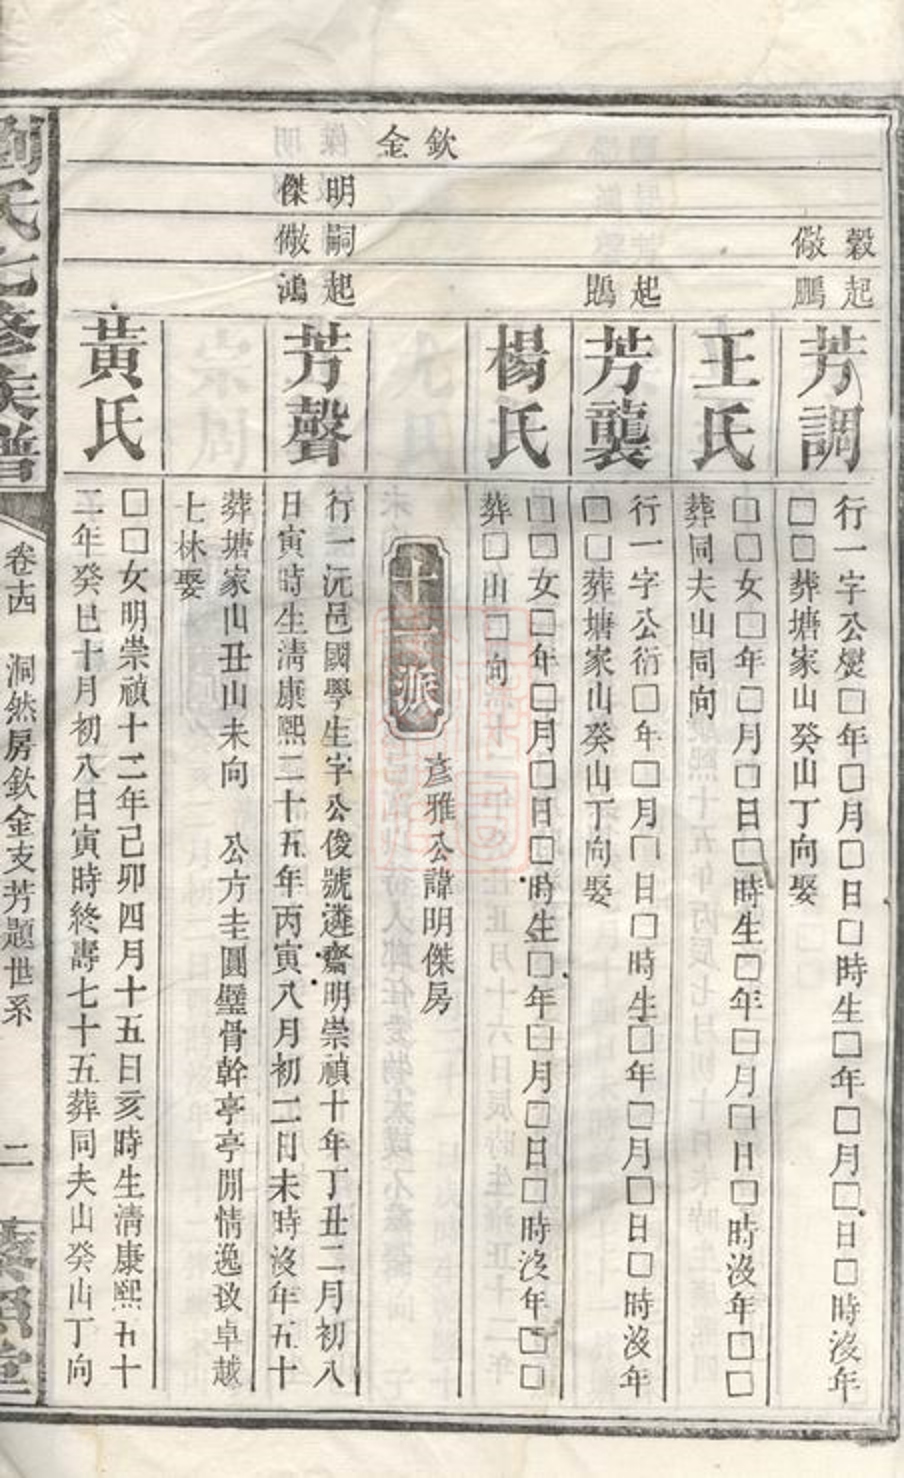 欽金
明傑
嗣儆
穀儆
起鵬
起鴟
起鴻
芳調
行一字公爕□年□月□日□時生□年□月□日□時沒年
□□葬塘家山癸山丁向娶
王氏
□□女□年□月□日□時生□年□月□日□時沒年□□
葬同夫山同向
芳襲
行一字公衍□年□月□日□時生□年□月□日□時沒年
□□葬塘家山癸山丁向娶
楊氏
□□女□年□月□日□時生□年□月□日□時沒年□□
葬□山□向
十二派
彥雅公諱明傑房
芳聲
行一沅邑國學生字公俊號遴齋明崇禎十年丁丑二月初八
日寅時生淸康熙二十五年丙寅八月初二日未時沒年五十
葬塘家山丑山未向 公方圭圓璧骨幹亭亭閒情逸致卓越
七林娶
黃氏
□□女明崇禎十二年己卯四月十五日亥時生淸康熙五十
二年癸巳十月初八日寅時終壽七十五葬同夫山癸山丁向
劉氏七修族譜
卷廿四 洞然房欽金支芳題世系 二
藜照堂